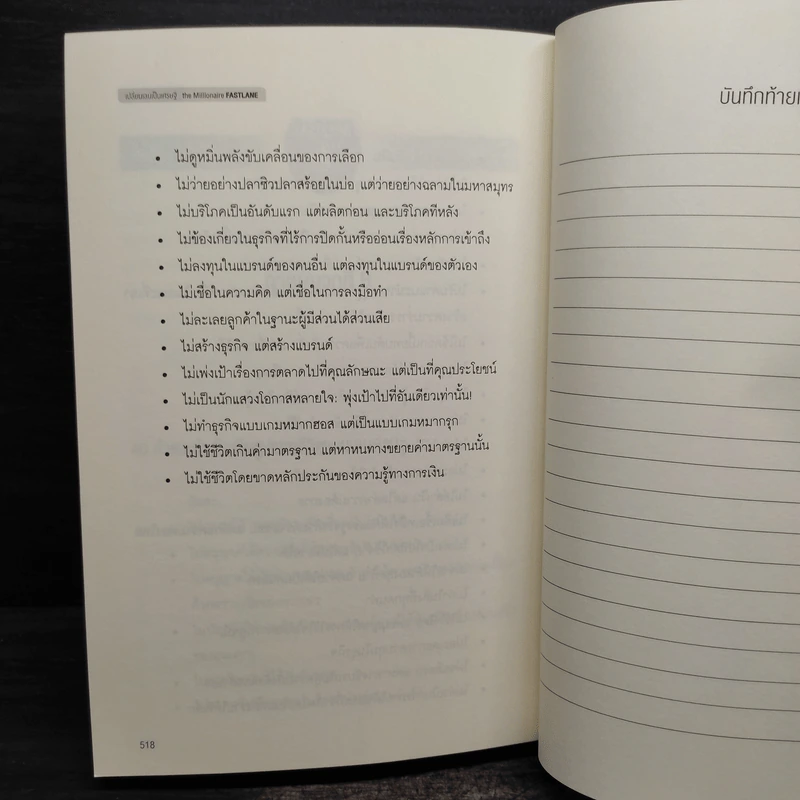 เปลี่ยนถนนเป็นเศรษฐี : the Millionaire FASTLANE
• ไม่ดูหมิ่นพลังขับเคลื่อนของการเลือก
• ไม่ว่ายอย่างปลาซิวปลาสร้อยในบ่อ แต่ว่ายอย่างฉลามในมหาสมุทร
• ไม่บริโภคเป็นอันดับแรก แต่ผลิตก่อน และบริโภคทีหลัง
• ไม่ข้องเกี่ยวในธุรกิจที่ไร้การปิดกั้นหรืออ่อนเรื่องหลักการเข้าถึง
• ไม่ลงทุนในแบรนด์ของคนอื่น แต่ลงทุนในแบรนด์ของตัวเอง
• ไม่เชื่อในความคิด แต่เชื่อในการลงมือทำ
• ไม่ละเลยลูกค้าในฐานะผู้มีส่วนได้ส่วนเสีย
• ไม่สร้างธุรกิจ แต่สร้างแบรนด์
• ไม่เพ่งเป้าเรื่องการตลาดไปที่คุณลักษณะ แต่เป็นที่คุณประโยชน์
• ไม่เป็นนักแสวงโอกาสหลายใจ: พุ่งเป้าไปที่อันเดียวเท่านั้น!
• ไม่ทำธุรกิจแบบเกมหมากฮอส แต่เป็นแบบเกมหมากรุก
• ไม่ใช้ชีวิตเกินค่ามาตรฐาน แต่หาหนทางขยายค่ามาตรฐานนั้น
• ไม่ใช้ชีวิตโดยขาดหลักประกันของความรู้ทางการเงิน
518
บันทึกท้าย